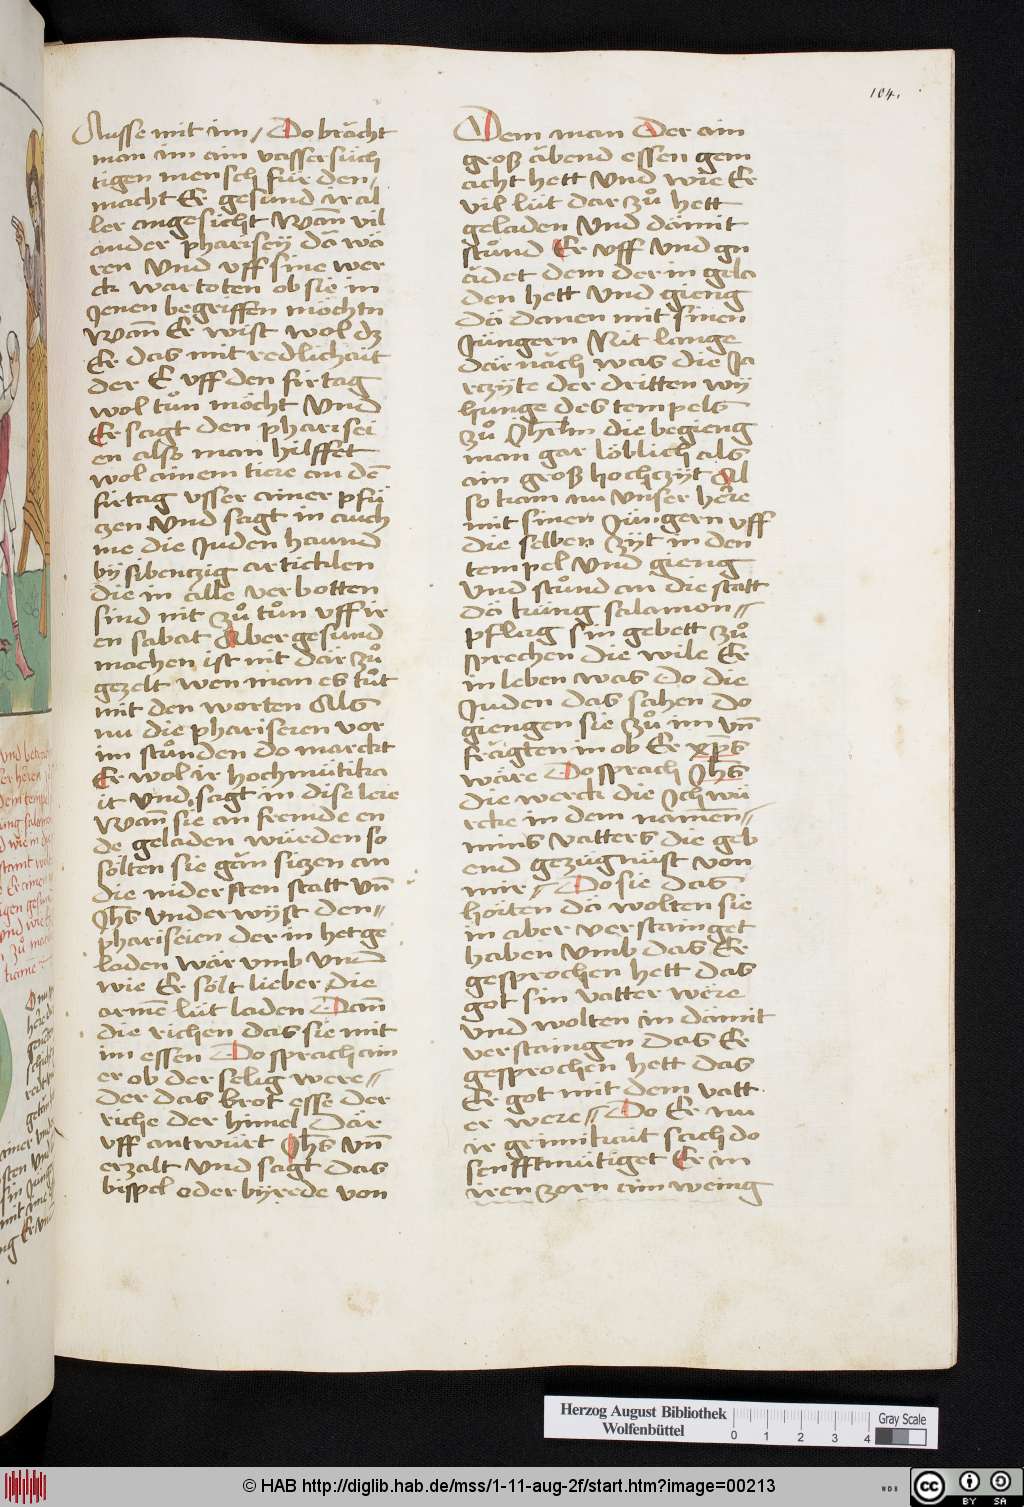 104.
Ausse mit im / Do brächt
man im ain vassersüch
tigen mensch für den=
macht Er gesund ir al
ler angesicht Wan̄ vil
ander phariseÿ dä wä
ren Vnd vff sine wer
ck wartoten ob sie in
Jenen begriffen möchtn
Wan̄ Er wist wol dz
Er das mit redlichait
der E vff den firtag
wol tůn möcht Vnd
Er sagt den pharisei
en also man hilffet
wol ainem tiere an dē
firtag vsser ainer pfü
czen Vnd sagt in auch
me die Juden haund
bÿ sibenczig artickllen
die in alle verbotten
sind nit zů tůn vff ir
en sabat Aber gesund
machen ist nit där zů
gezelt wen man es tůt
mit den worten Als
nu die phariseien vor
im stůnden do marckt
Er wol ir hochmütika
it Vnd sagt in dise lere
Wan̄ sie an fremde en
de geladen würden so
sölten sie gän siczen an
die nidersten statt vn̄
Jhs̄ vnderwÿst den=
phariseien der in het ge
laden wär vmb Vnd
wie Er sölt lieber die
armē lüt laden Dan̄
die richen das sie mit
im essen Do sprach ain
er ob der selig were=
der das brot esse der
riche der himel Där
vff antwürt Jhs̄ vn̄
erzalt Vnd sagt das
bispel oder bÿrede von
Dem man Der ain
groß äbend essen gem
acht hett Vnd wie Er
vil lüt dar zů hett
geladen Vnd dämit
stůnd Er vff Vnd gn
ädet dem der in gela
den hett Vnd gieng
dä danen mit sinen
Jüngern Nit lange
därnäch was die Ja
rczÿte der dritten wÿ
hunge des tempels
zů Jhrlm̄ die begieng
man gar löblich als
ain groß hochczÿt Al
so kam nu Vnser here
mit sinen Jüngern vff
die selben zÿt in den
tempel Vnd gieng
Vnd stůnd an die statt
dä küng salamon=
pflag sin gebett zů
sprechen die wile Er
in leben was Do die
Juden das sahen do
giengen sie zů im vn̄
frägten in ob Er xp̄s
wäre Do sprach Jhs̄
die werck die Jch wü
rcke in dem namen=
mins vatters die geb
end gezügnüst von
mir= Do sie das
höiten dä wolten sie
in aber verstainget
haben Vmb das Er
gesprochen hett das
got sin vatter were
Vnd wolten in dämit
verstaingen das Er
gesprochen hett das
Er got mit dem vatt
er were= Do Er nu
ir grimikait sach do
senfftmütiget Er in
iren zorn ain wenig
Herzog August Bibliothek
Wolfenbüttel
0 1 2 3 4
Gray Scale
© HAB http://diglib.hab.de/mss/1-11-aug-2f/start.htm?image=00213
WDB
cc BY SA